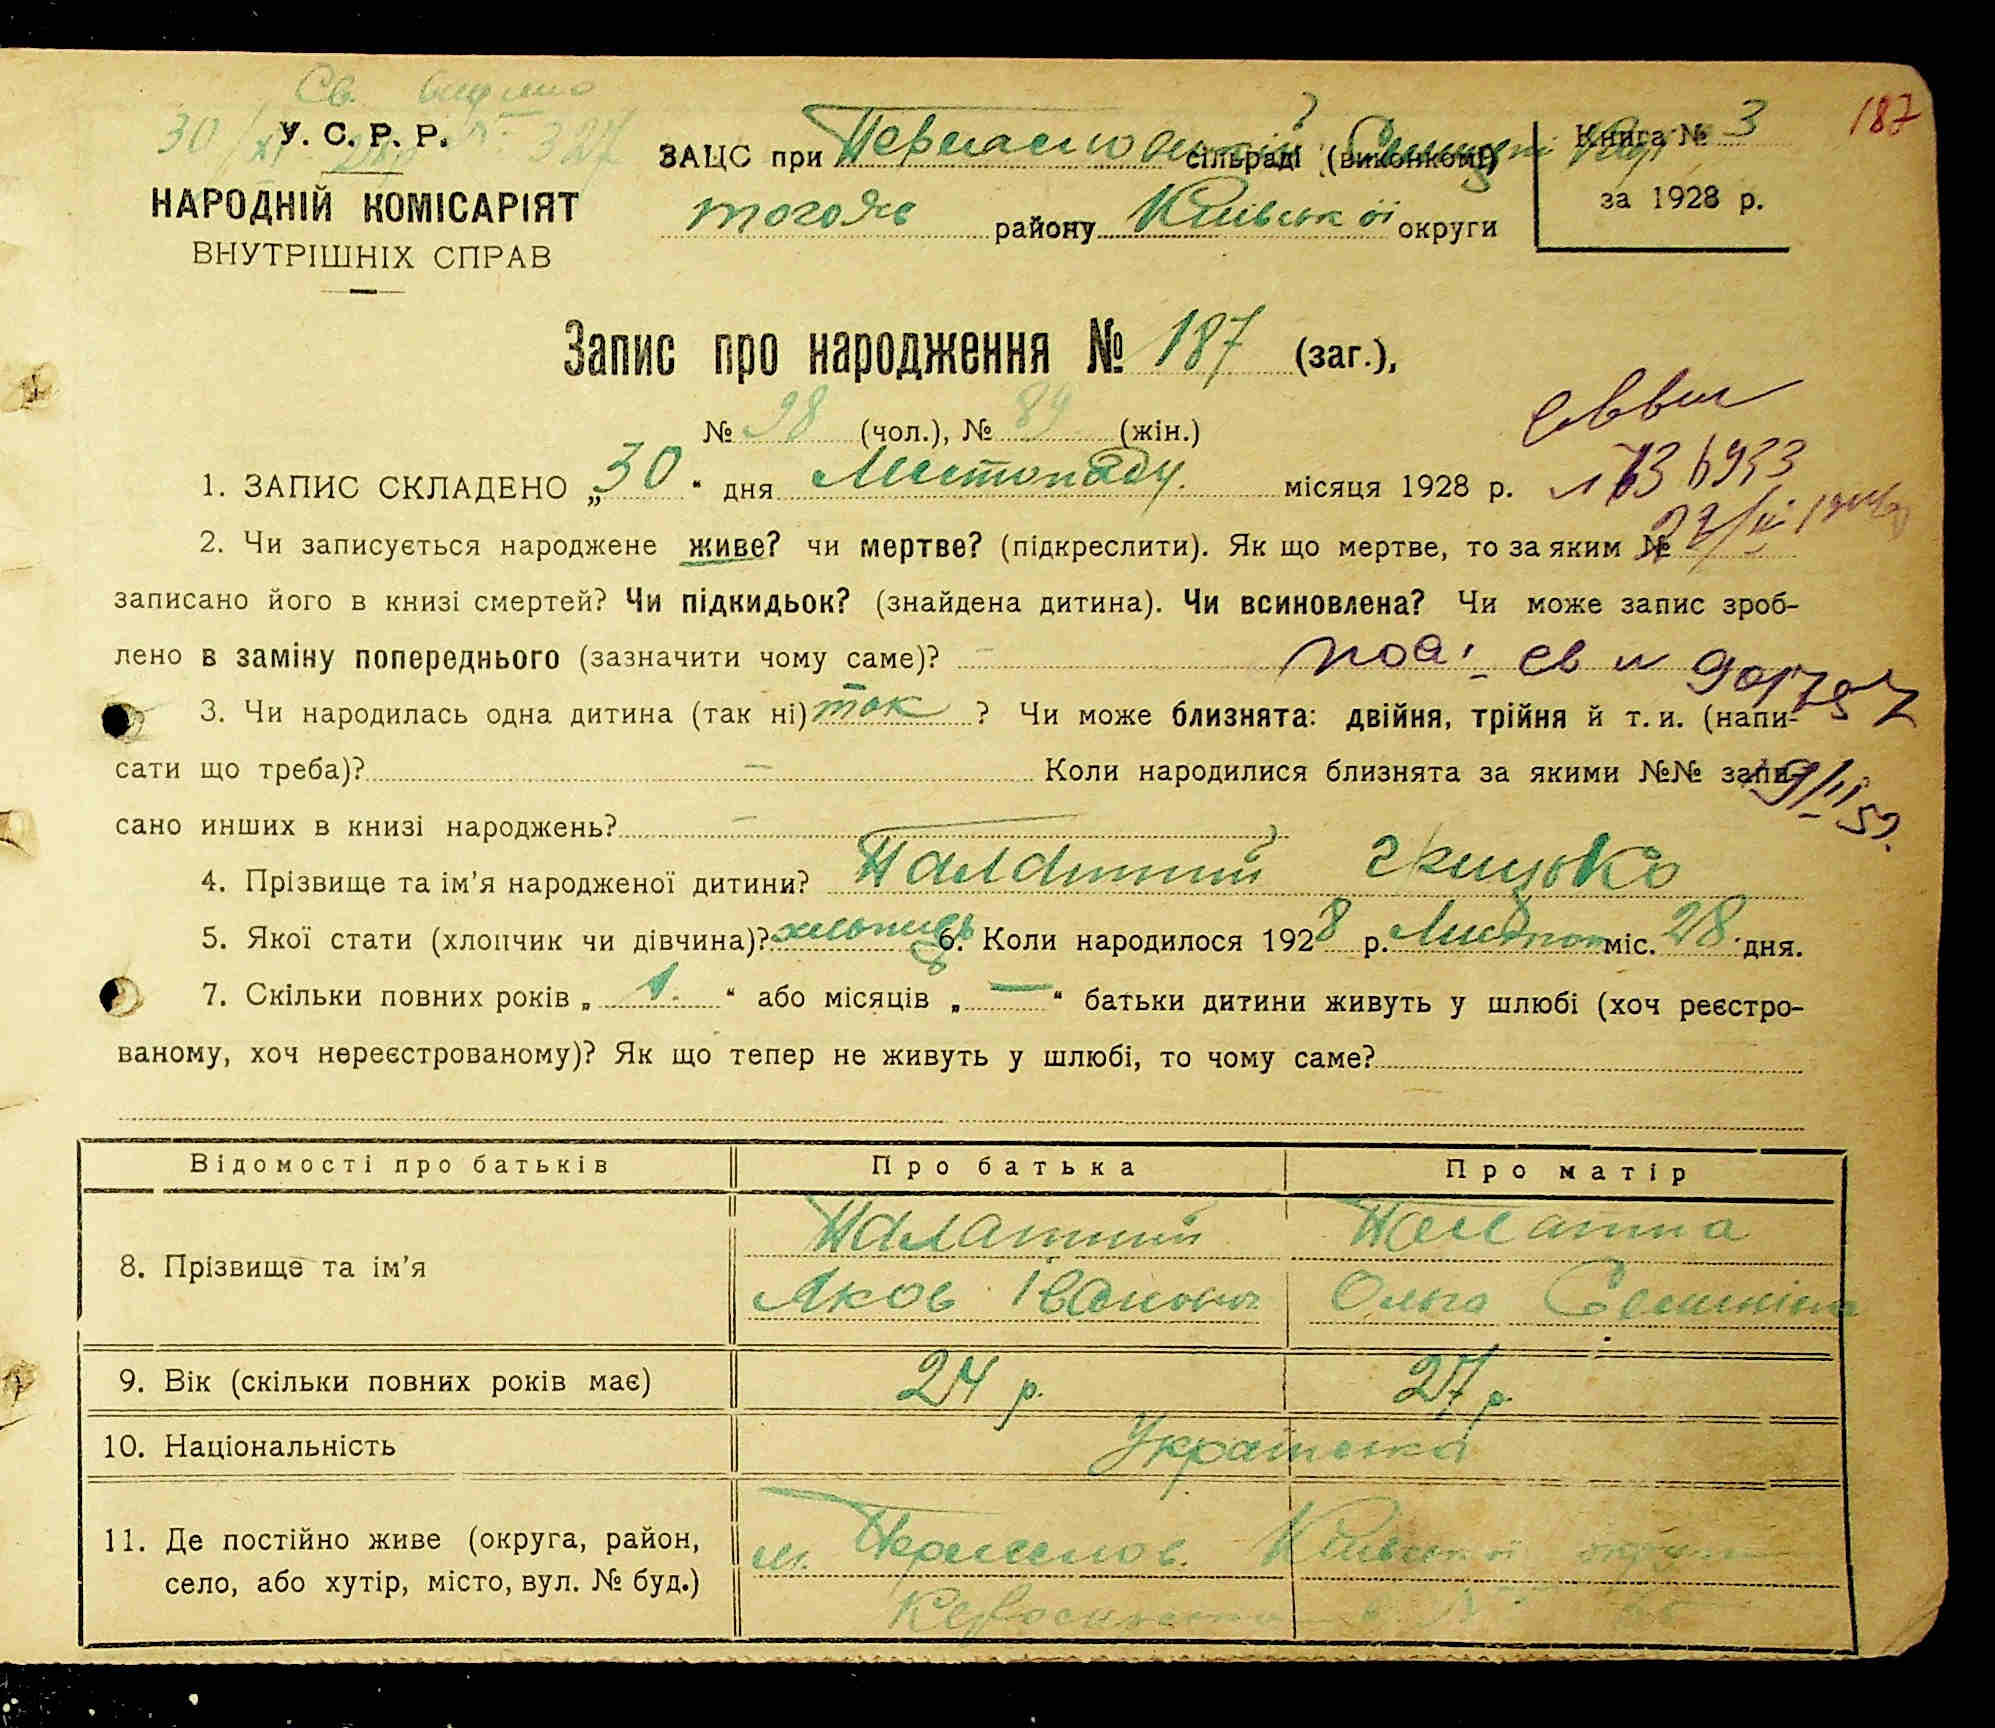 Св. видано
30/XI 28р № 327
У. С. Р. Р.
НАРОДНІЙ КОМІСАРІЯТ
ВНУТРІШНІХ СПРАВ
ЗАЦС при Переяславській сільраді (виконкомі)
тогож району Київської округи
Книга № 3
за 1928 р.
187
Запис про народження № 187 (заг.),
№ 98 (чол.), № 89 (жін.)
1. ЗАПИС СКЛАДЕНО „30“ дня Листопаду. місяця 1928 р.
2. Чи записується народжене живе? чи мертве? (підкреслити). Як що мертве, то за яким №
записано його в книзі смертей? Чи підкидьок? (знайдена дитина). Чи всиновлена? Чи може запис зроб-
лено в заміну попереднього (зазначити чому саме)? —
3. Чи народилась одна дитина (так ні) так ? Чи може близнята: двійня, трійня й т. и. (напи-
сати що треба)? — Коли народилися близнята за якими №№ запи-
сано инших в книзі народжень? —
4. Прізвище та ім'я народженої дитини? Палатний Грицько
5. Якої стати (хлопчик чи дівчина)? хлопець 6. Коли народилося 1928 р. Листопад міс. 28 дня.
7. Скільки повних років „ 1. “ або місяців „ — “ батьки дитини живуть у шлюбі (хоч реєстро-
ваному, хоч нереєстрованому)? Як що тепер не живуть у шлюбі, то чому саме?
Відомості про батьків Про батька Про матір
8. Прізвище та ім'я Палатний Палатна
Яков Іванович Ольга
9. Вік (скільки повних років має) 24 р. 27 р.
10. Національність Українська
11. Де постійно живе (округа, район, м. Переяслов. Київської округи
село, або хутір, місто, вул. № буд.)